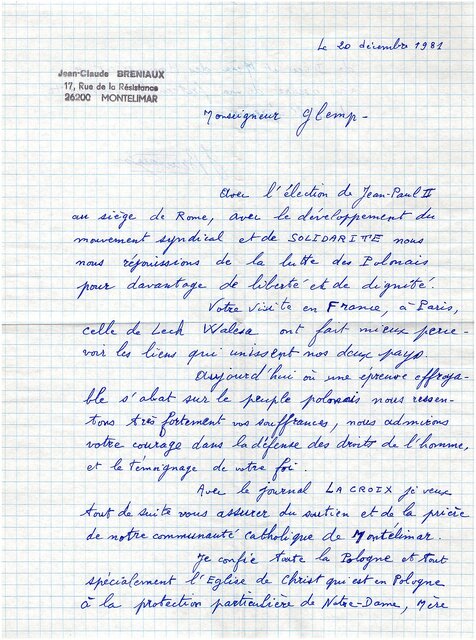 Le 20 décembre 1981
Jean-Claude BRENIAUX
17, Rue de la Résistance
26200 MONTELIMAR
Monseigneur Glemp-
Avec l'élection de Jean-Paul II
au siège de Rome, avec le développement du
mouvement syndical et de SOLIDARITE nous
nous réjouissions de la lutte des Polonais
pour davantage de liberté et de dignité
Votre visite en France, à Paris,
celle de Lech Walesa ont fait mieux perce-
voir les liens qui unissent nos deux pays.
Aujourd'hui où une épreuve effroya-
ble s'abat sur le peuple polonais nous ressen-
tons très fortement vos souffrances, nous admirons
votre courage dans la défense des droits de l'homme,
et le témoignage de votre foi.
Avec le journal LA CROIX je veux
tout de suite vous assurer du soutien et de la prière
de notre communauté catholique de Montélimar.
Je confie toute la Pologne et tout
spécialement l'Eglise de Christ qui est en Pologne
à la protection particulière de Notre-Dame, Mère